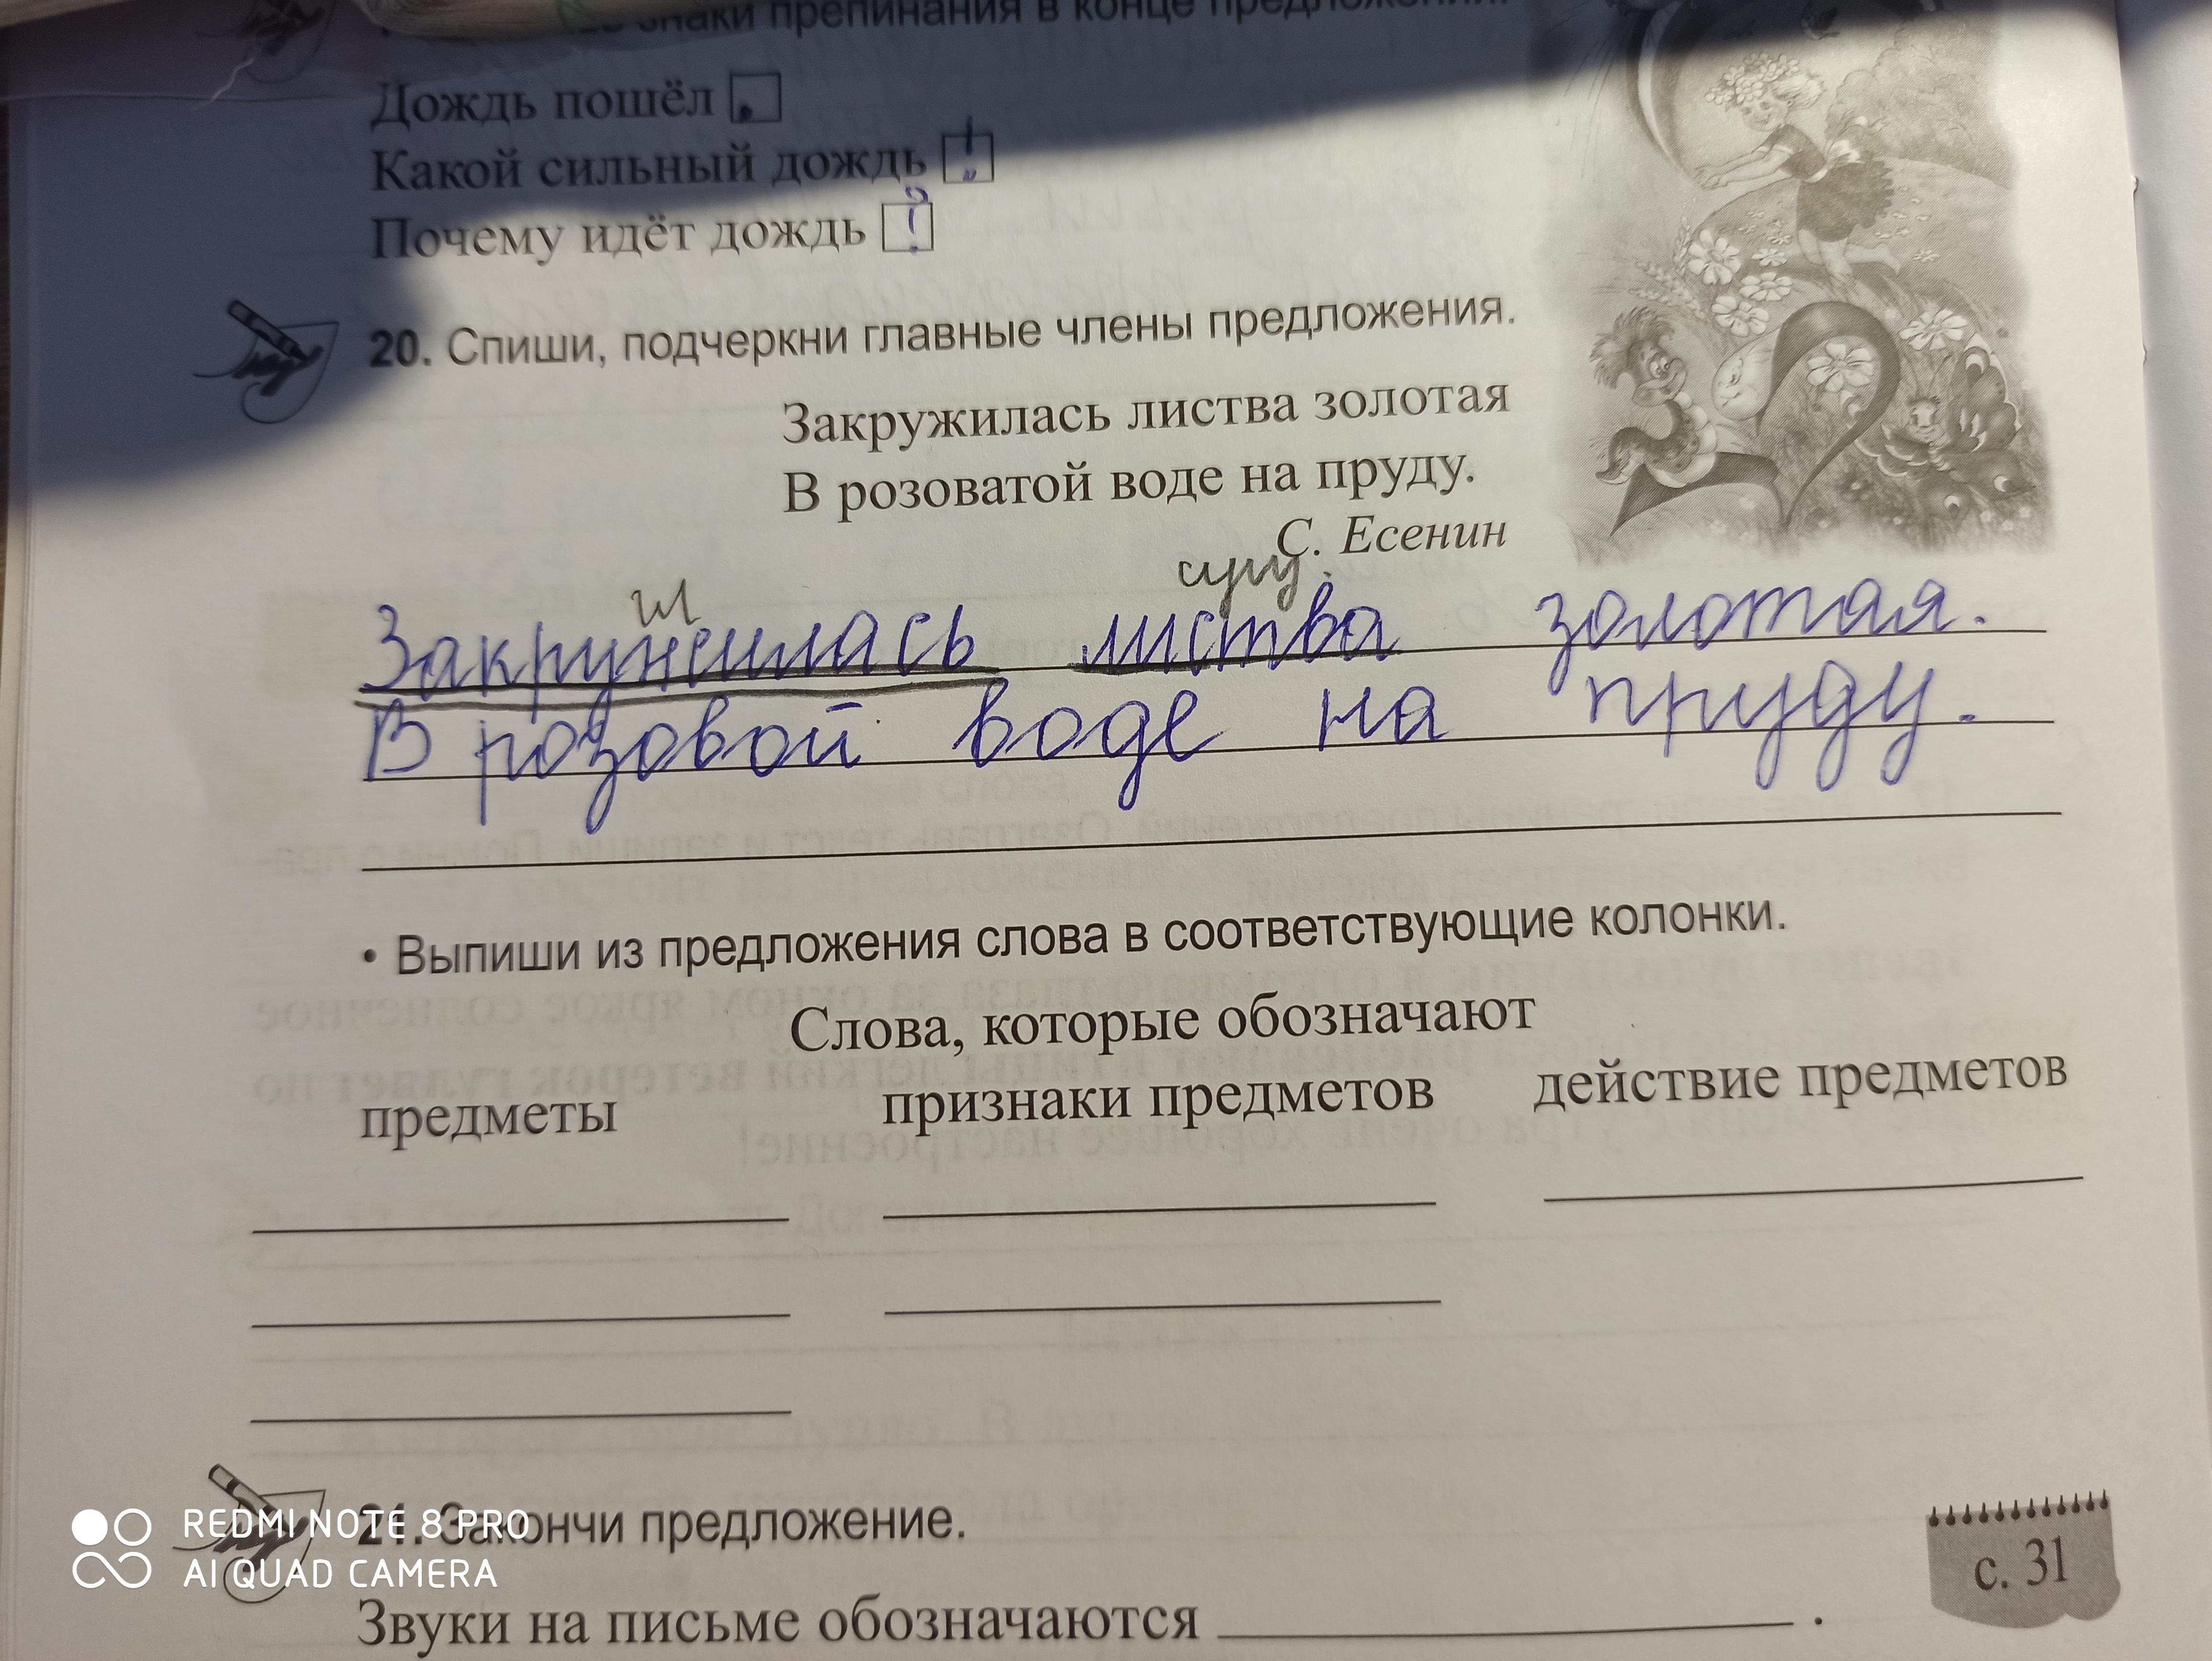 знаки препинания в конце предложений.
Дождь пошёл .
Какой сильный дождь !
Почему идёт дождь ?
20. Спиши, подчеркни главные члены предложения.
Закружилась листва золотая
В розоватой воде на пруду.
С. Есенин
гл сущ.
Закружилась листва золотая.
В розовой воде на пруду.
• Выпиши из предложения слова в соответствующие колонки.
Слова, которые обозначают
предметы признаки предметов действие предметов
21. Закончи предложение.
Звуки на письме обозначаются .
с. 31
REDMI NOTE 8 PRO
AI QUAD CAMERA